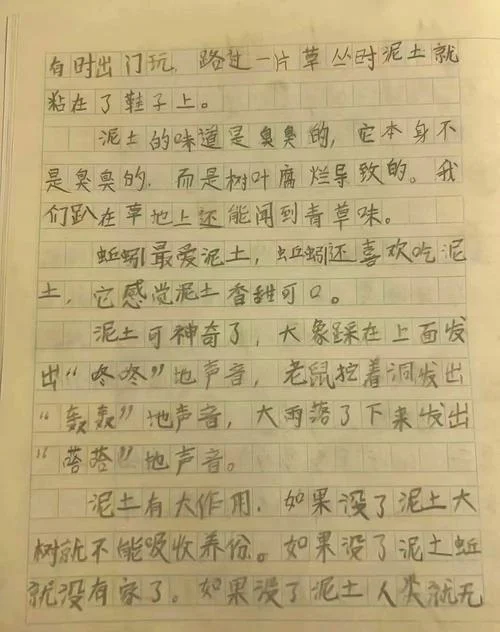 有时出门玩，路过一片草丛时泥土就
粘在了鞋子上。
泥土的味道是臭臭的，它本身不
是臭臭的，而是树叶腐烂导致的。我
们趴在草地上还能闻到青草味。
蚯蚓最爱泥土，蚯蚓还喜欢吃泥
土，它感觉泥土香甜可口。
泥土可神奇了，大象踩在上面发
出“咚咚”地声音，老鼠挖着洞发出
“轰轰”地声音，大雨落了下来发出
“嗒嗒”地声音。
泥土有大作用，如果没了泥土大
树就不能吸收养份。如果没了泥土蚯
就没有家了。如果没了泥土人类就无